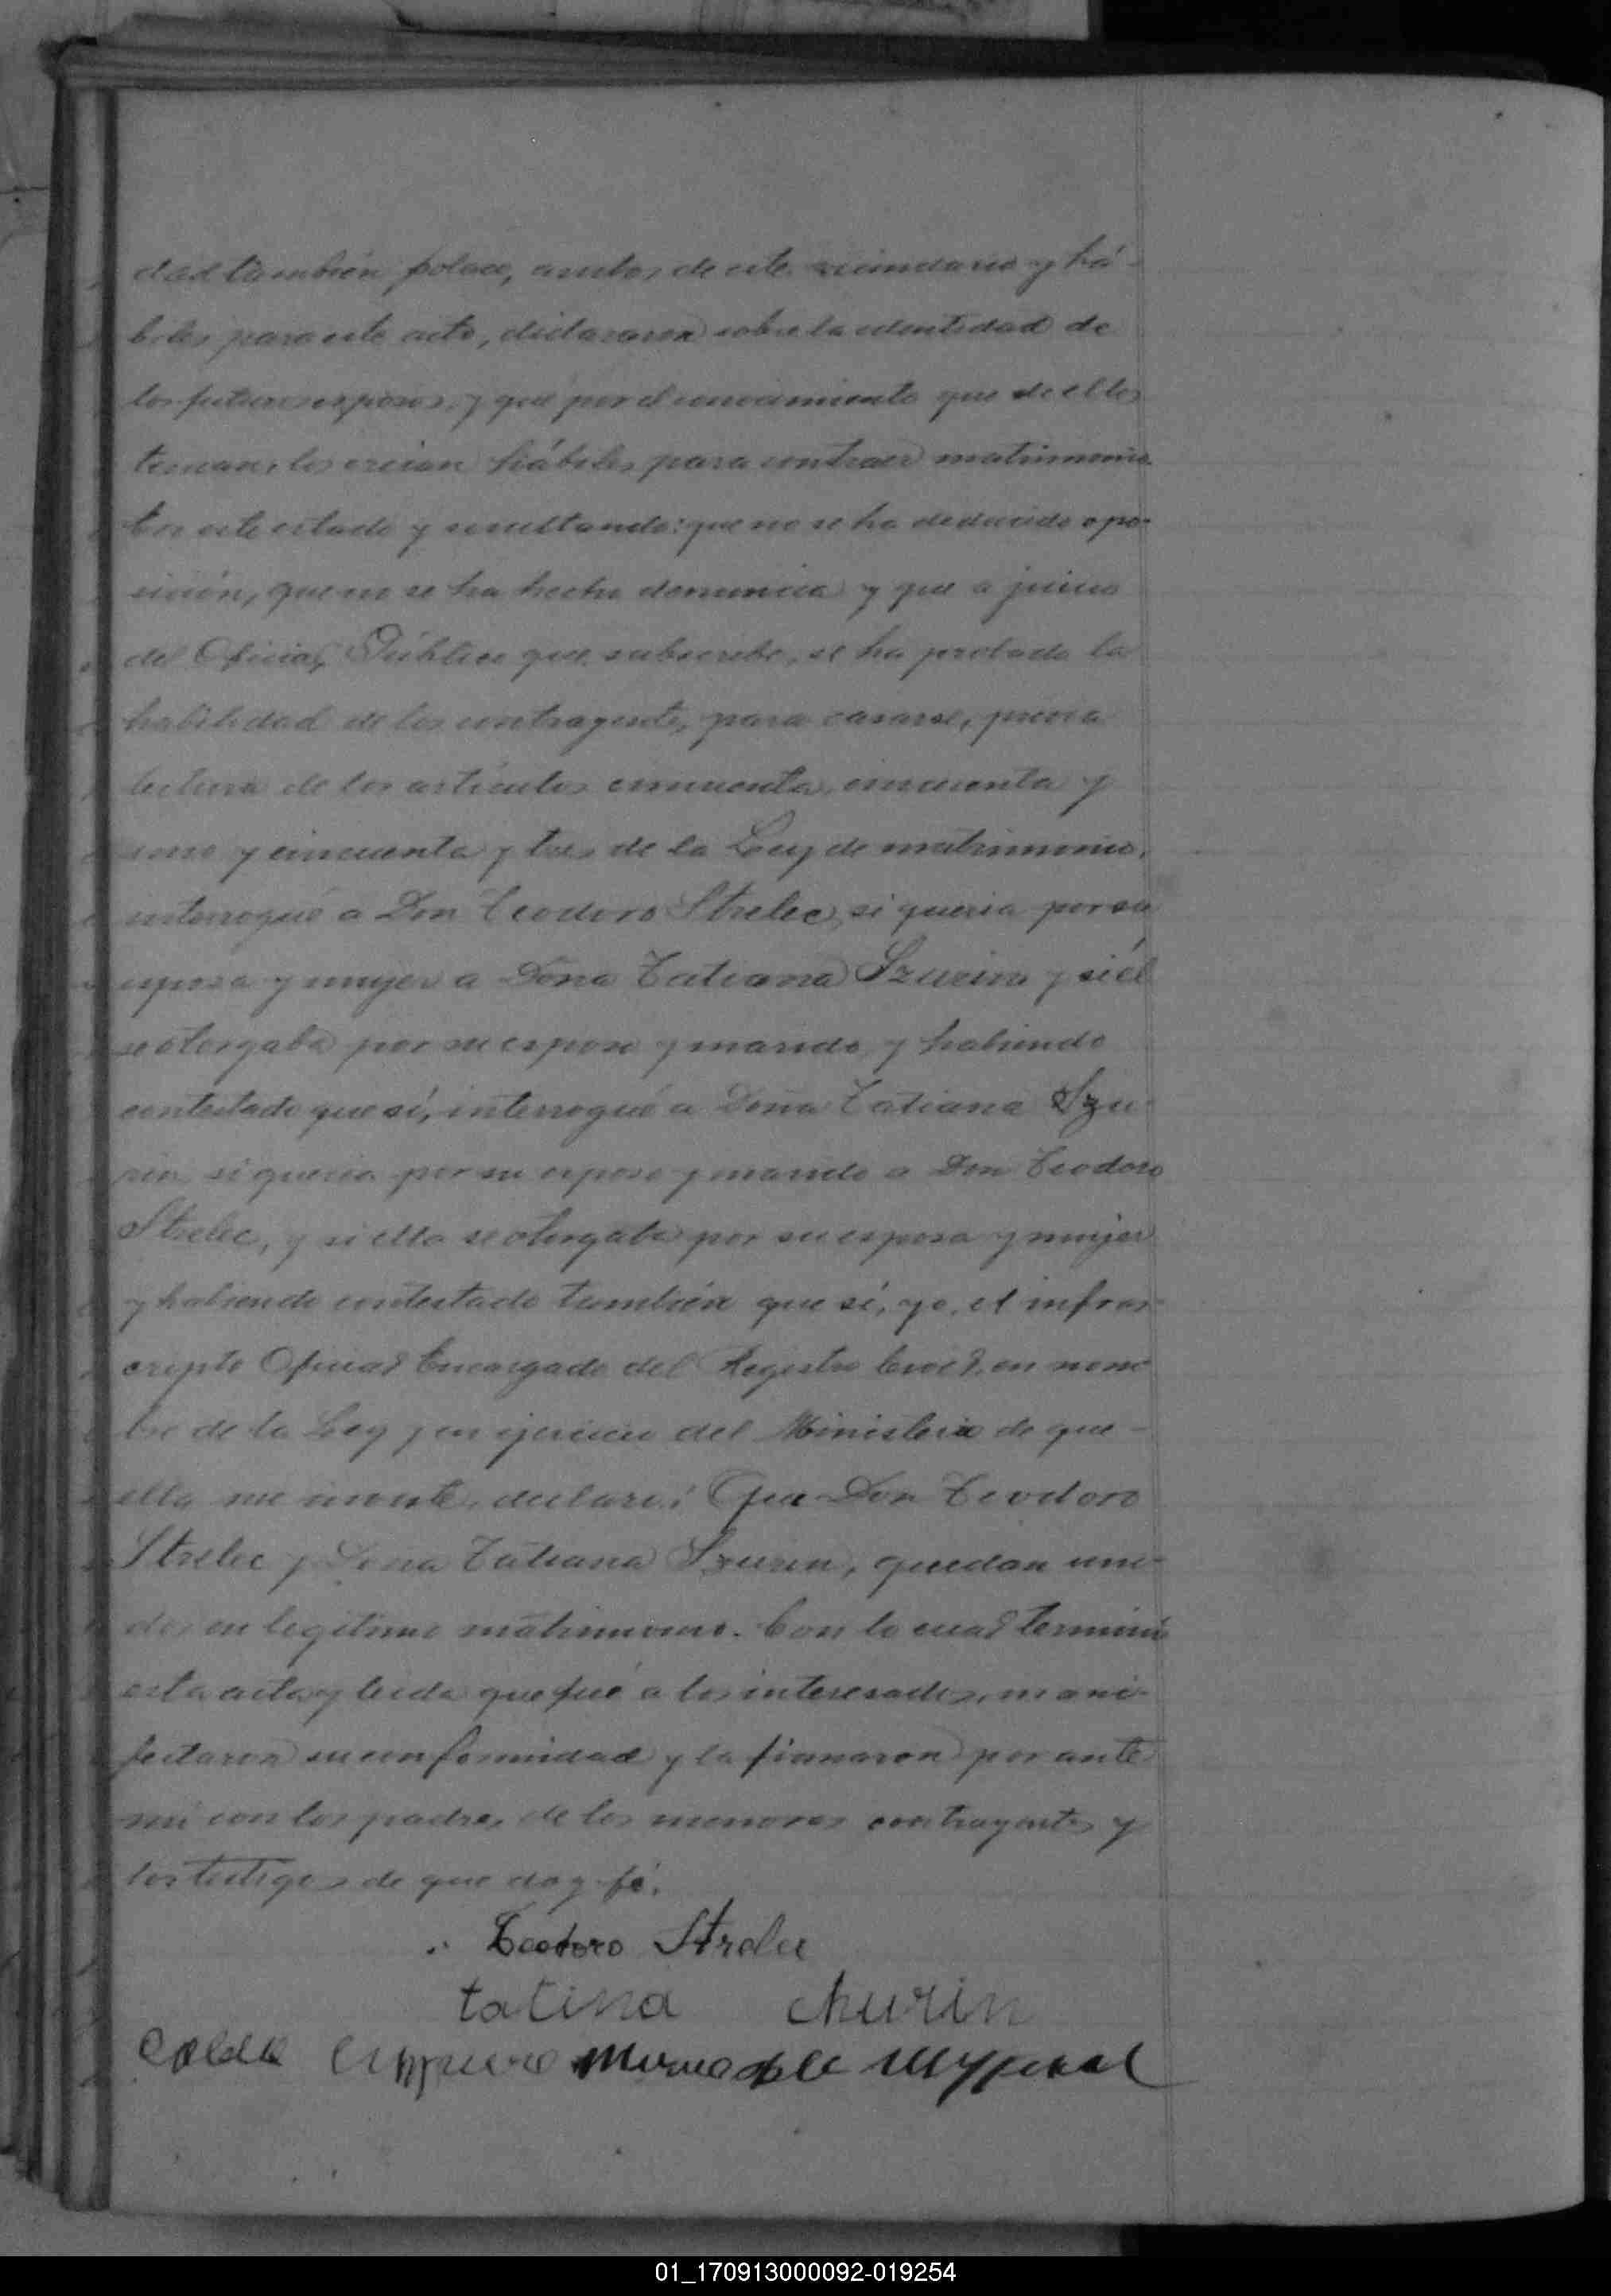 dad también polaco, ambos de este vecindario y há-
biles para este acto, declararon sobre la identidad de
los futuros esposos, y que por el conocimiento que de ellos
tenian, los creian hábiles para contraer matrimonio.
En este estado y resultando: que no se ha deducido opo-
sición, que no se ha hecho denuncia y que a juicio
del Oficial Público que subscribe, se ha probado la
habilidad de los contrayentes, para casarse, previa
lectura de los artículos cincuenta, cincuenta y
uno y cincuenta y tres de la Ley de matrimonio,
interrogué a Don Teodoro Strelec, si queria por su
esposa y mujer a Doña Tatiana Szurin y si él
se otorgaba por su esposo y marido, y habiendo
contestado que sí, interrogué a Doña Tatiana Szu-
rin, si queria por su esposo y marido a Don Teodoro
Strelec, y si ella se otorgaba por su esposa y mujer
y habiendo contestado también que sí, yo, el infras-
cripto Oficial Encargado del Registro Civil, en nom-
bre de la Ley y en ejercicio del Ministerio de que
ella me inviste, declaro: Que Don Teodoro
Strelec y Doña Tatiana Szurin, quedan uni-
dos en legítimo matrimonio. Con lo cual terminó
esta acta y leida que fué a los interesados, mani-
festaron su conformidad y la firmaron por ante
mi con los padres de los menores contrayentes y
los testigos de que doy fé.
Teodoro Strelec
tatina churin